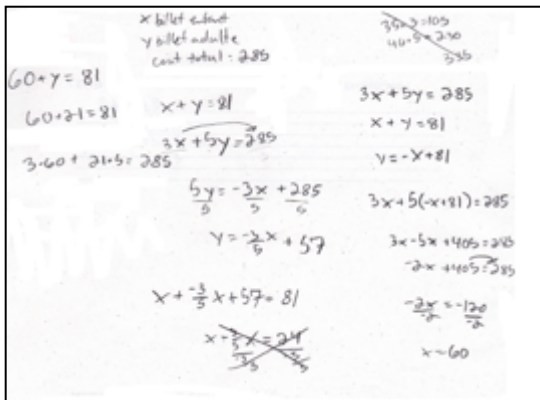 x billet enfant
y billet adulte
cout total = 285
35×3=105
46×5=230
335
60+y=81
60+21=81
3·60 + 21·5= 285
x+y=81
3x+5y=285
5y = -3x + 285
5 5 5
y= -3/5 x + 57
x + -3/5 x + 57 = 81
x - 3/5 x = 24
3x+5y=285
x+y=81
y=-x+81
3x+5(-x+81)=285
3x-5x+405=285
-2x+405=285
-2x = -120
-2 -2
x=60